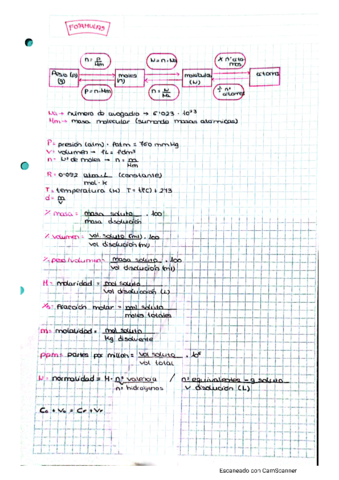 FORMULAS
n = P/Mm
N = n·Na
x nº átomos
Peso (g)
moles (n)
moléculas (N)
átomos
P = n·Mm
n = N/Na
÷ nº átomos
Na → número de avogadro = 6'023 · 10²³
Mm → masa molecular (sumando masas atómicas)
P = presión (atm) · 1 atm = 760 mmHg
V = volumen → 1L = 1dm³
n = Nº de moles → n = m/Mm
R = 0'082 atm·L / mol·K (constante)
T = temperatura (K) T = t(ºC) + 273
d = m/V
% masa = masa soluto / masa disolución · 100
% volumen = vol soluto (ml) / vol disolución (ml) · 100
% peso/volumen = masa soluto / vol disolución (ml) · 100
M = molaridad = mol soluto / vol disolución (L)
fracción molar = mol soluto / moles totales
m = molalidad = mol soluto / kg disolvente
ppm = partes por millón = vol soluto / vol total · 10⁶
N = normalidad = M · nº valencia / nº equivalentes-g soluto
V disolución (L)
Escaneado con CamScanner